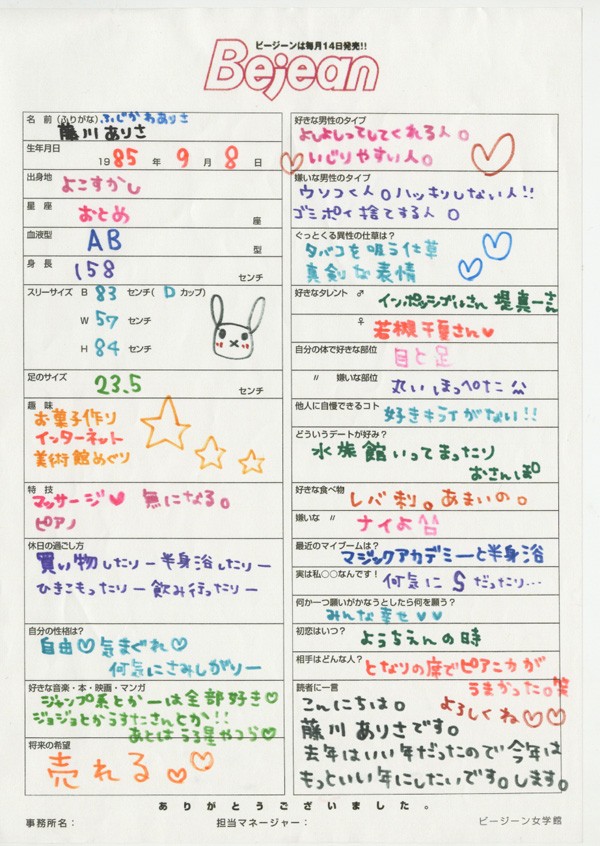 ビージーンは毎月14日発売!!
Bejean
名 前 (ふりがな) ふじかわありさ
藤川ありさ
生年月日
1985年 9月 8日
出身地
よこすかし
星 座
おとめ 座
血液型
AB 型
身 長
158 センチ
スリーサイズ B 83 センチ( D カップ)
W 57 センチ
H 84 センチ
足のサイズ
23.5 センチ
趣 味
お菓子作り
インターネット
美術館めぐり
特 技
マッサージ♥ 無になる。
ピアノ
休日の過ごし方
買い物したりー半身浴したりー
ひきこもったりー飲み行ったりー
自分の性格は?
自由♡気まぐれ♡
何気にさみしがりー
好きな音楽・本・映画・マンガ
ジャンプ系とかーは全部好き♡
ジョジョとかうすたさんとか!!
あとはうる星やつら♡
将来の希望
売れる♡♡
好きな男性のタイプ
よしよしってしてくれる人。
♡いじりやすい人。♡
嫌いな男性のタイプ
ウソつく人。ハッキリしない人!!
ゴミポイ捨てする人。
ぐっとくる異性の仕草は?
タバコを吸う仕草
真剣な表情
好きなタレント ♂ インポッシブルさん 堤真一さん
♀ 若槻千夏さん♥
自分の体で好きな部位
目と足
〃 嫌いな部位
丸いほっぺた^^
他人に自慢できるコト 好きキライがない!!
どういうデートが好み?
水族館いってまったり
おさんぽ。
好きな食べ物
レバ刺。あまいの。
嫌いな 〃
ナイよ^^
最近のマイブームは?
マジックアカデミーと半身浴
実は私○○なんです! 何気にSだったり…
何か一つ願いがかなうとしたら何を願う?
みんな幸せ♥♥
初恋はいつ?
ようちえんの時
相手はどんな人? となりの席でピアニカが
うまかった。笑
読者に一言
こんにちは。よろしくね♡♡
藤川ありさです。
去年はいい年だったので今年は
もっといい年にしたいです。します。
ありがとうございました。
事務所名: 担当マネージャー: ビージーン女学館